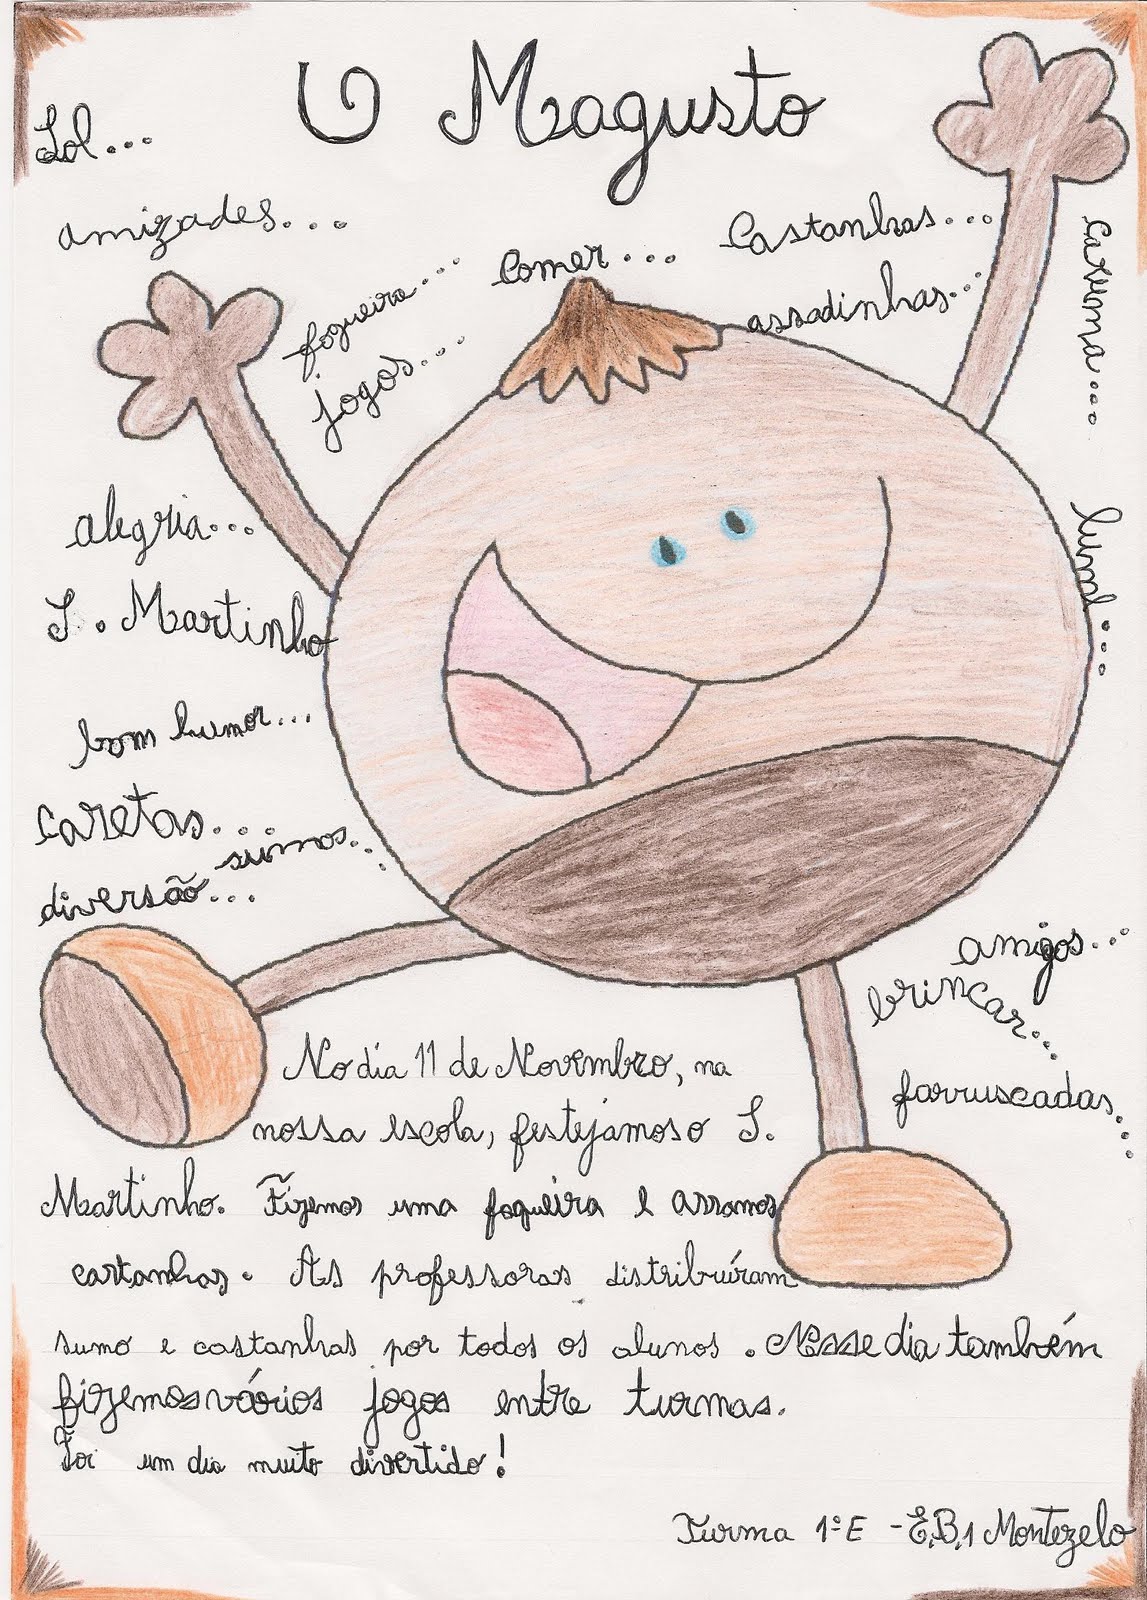 O Magusto
Sol...
amizades...
fogueira...
comer...
castanhas...
assadinhas...
caruma...
jogos...
alegria...
lume...
S. Martinho
bom humor...
caretas...
sumos...
diversão...
amigos...
brincar...
farruscadas...
No dia 11 de Novembro, na
nossa escola, festejamos o S.
Martinho. Fizemos uma fogueira e assamos
castanhas. As professoras distribuíram
sumo e castanhas por todos os alunos. Nesse dia também
fizemos vários jogos entre turmas.
Foi um dia muito divertido!
Turma 1º E - E.B.1 Montezelo